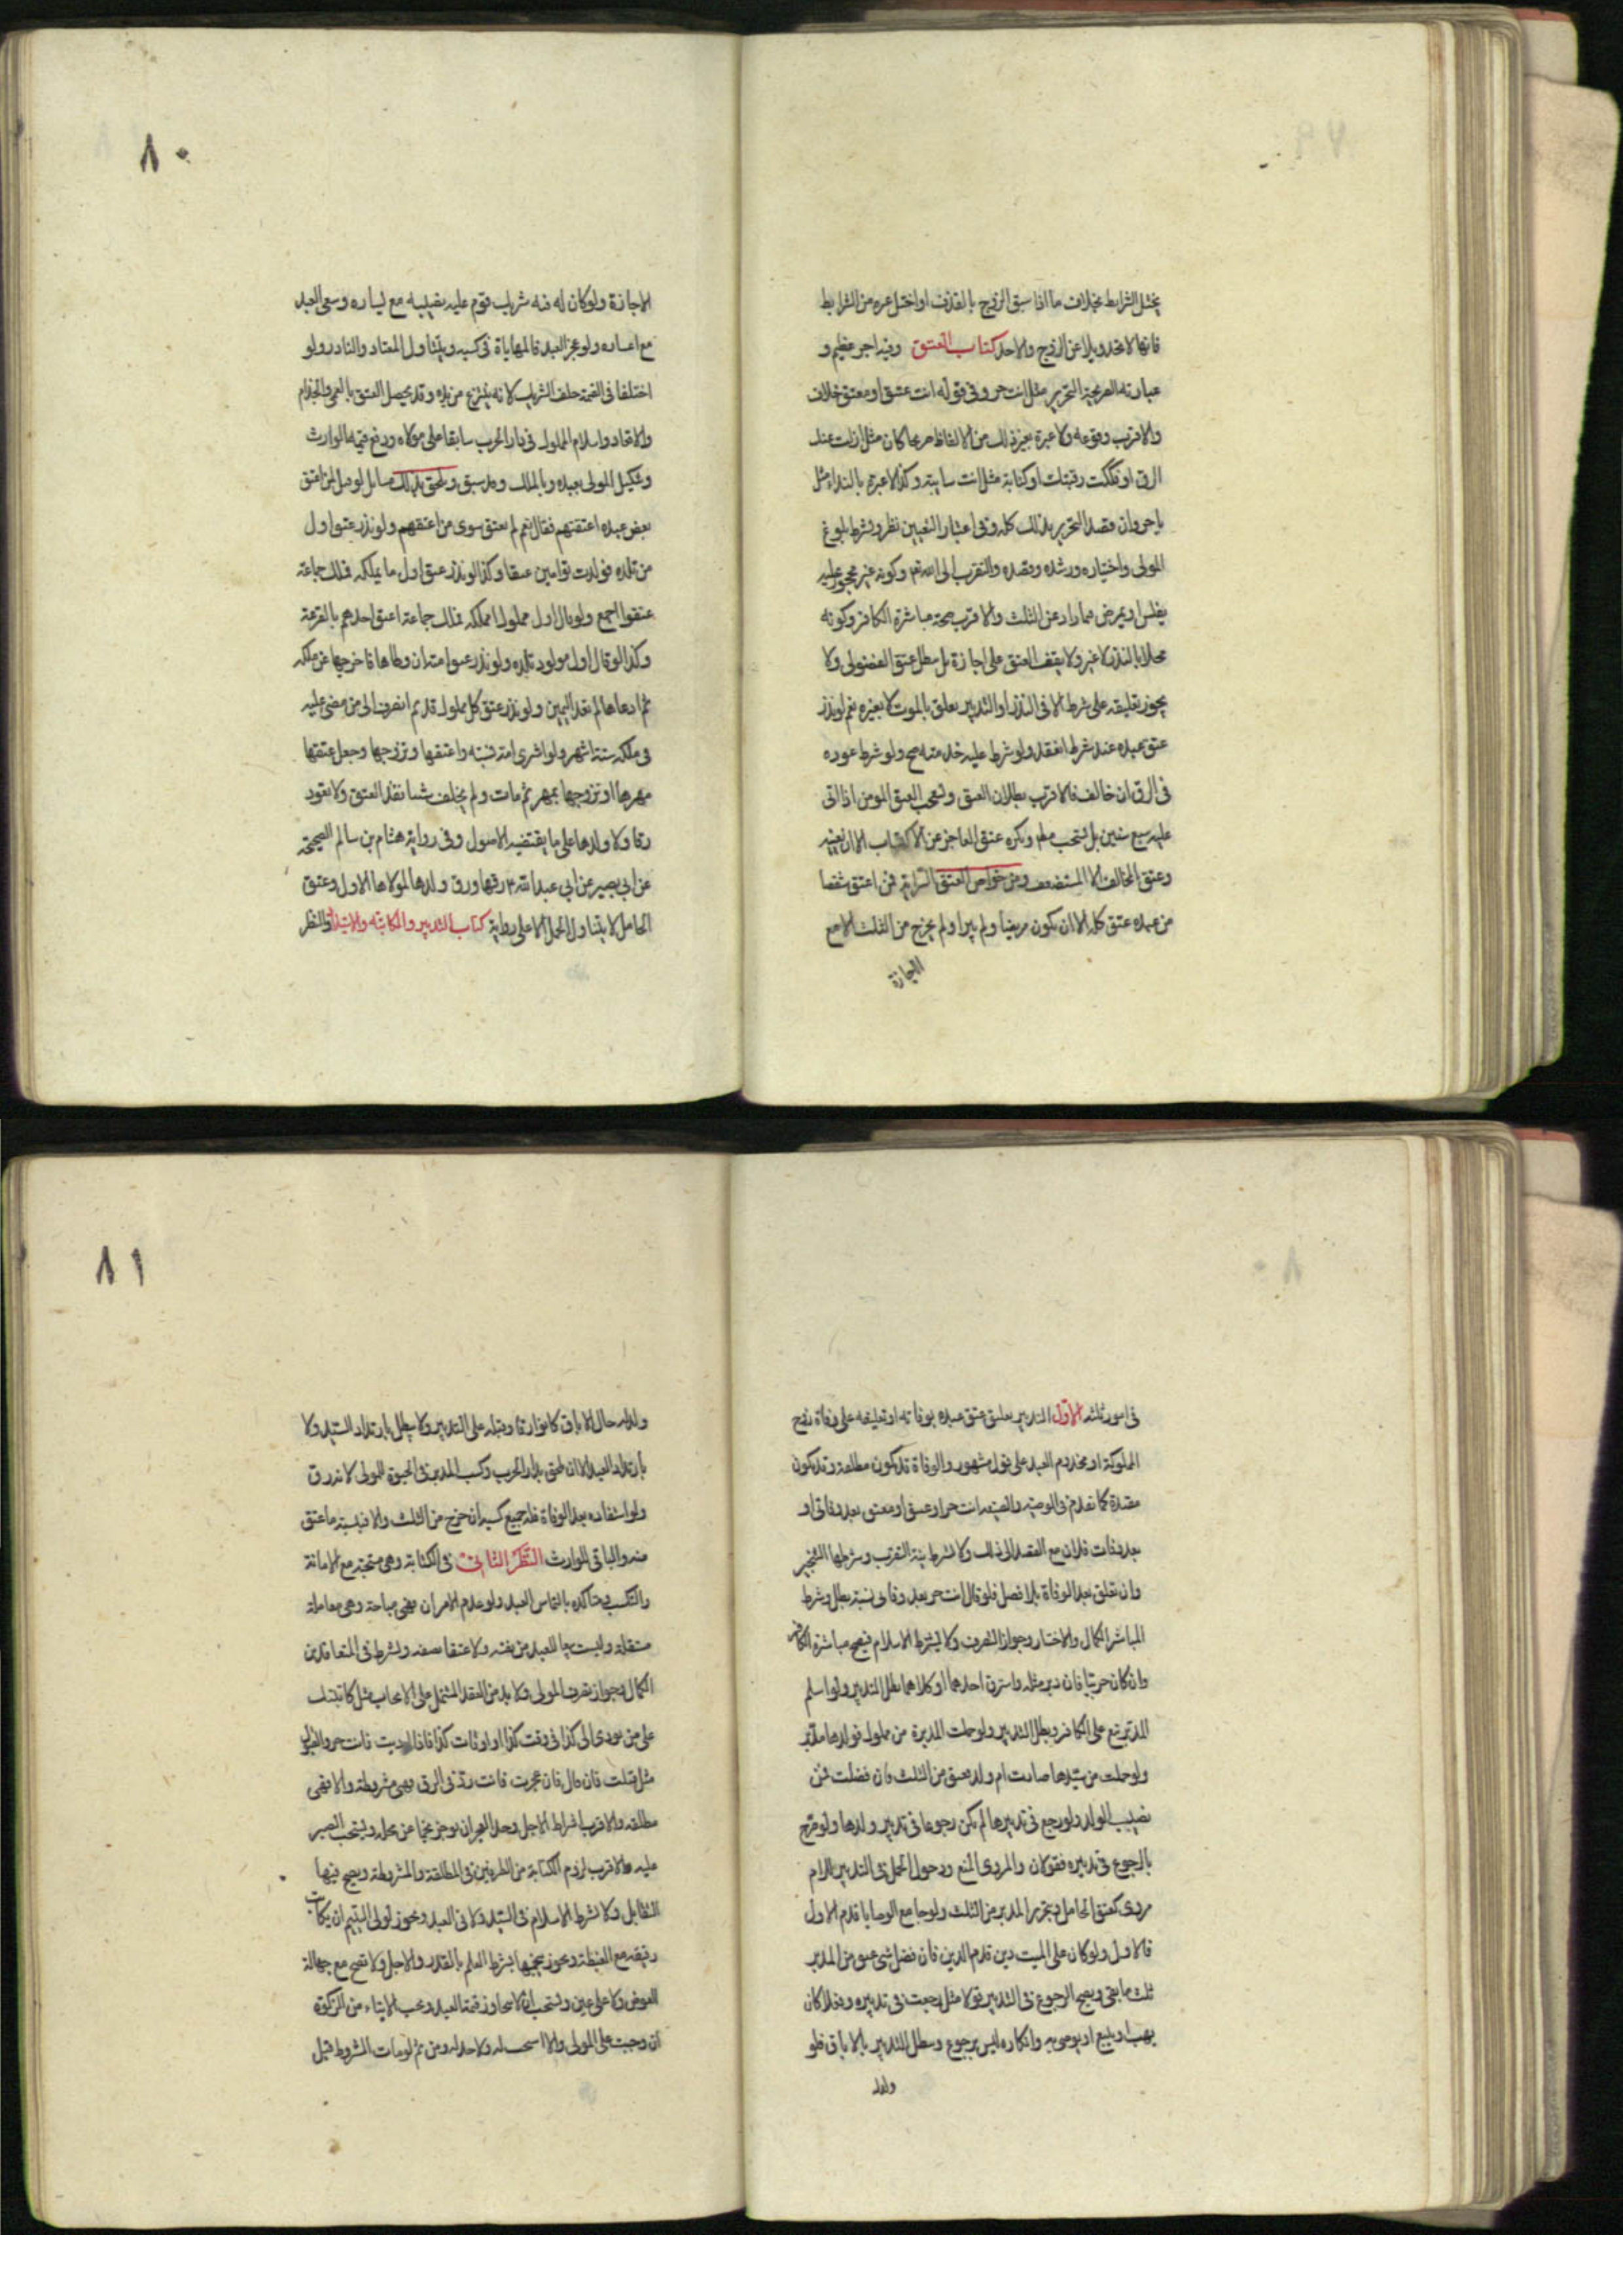 يختل الشرايط بخلاف ما اذا سبق الزوج بالقذف او اختل غيره من الشرايط
فانها لا تحد ويلاعن الزوج والا حد كتاب العتق وفيه اجر عظيم و
عبارته الصريحة التحرير مثل انت حر وفي قوله انت عتيق او معتق خلاف
والاقرب وقوعه ولا عبرة بغير ذلك من الالفاظ صريحا كان مثل ازلت عنك
الرق او فككت رقبتك او كناية مثل انت سايبة وكذا لا عبرة بالنداء مثل
يا حر وان قصد التحرير بذلك كله وفي اعتبار التعيين نظر ويشترط بلوغ
المولى واختياره ورشده وقصده والتقرب الى الله تع وكونه غير محجور عليه
بفلس او بمرض فيما زاد عن الثلث والاقرب صحة مباشرة الكافر وكونه
محلا بالنذر لا غير ولا يقف العتق على اجازة بل يبطل عتق الفضولي ولا
يجوز تعليقه على شرط الا في النذر او التدبير يعلق بالموت لا بغيره نعم لو نذر
عتق عبده عند شرط انعقد ولو شرط عليه خدمته صح ولو شرط عوده
في الرق ان خالف فالاقرب بطلان العتق ويستحب العتق المومن اذا اتى
عليه سبع سنين بل يستحب مطلقا ويكره عتق العاجز عن الاكتساب الا ان يعينه
وعتق المخالف لا المستضعف ومن خواص العتق السراية فمن اعتق شقصا
من عبده عتق كله الا ان يكون مريضا ولم يبرا ولم يخرج من الثلث الا مع
الاجازة
٨٠
الاجازة ولو كان له فيه شريك قوم عليه نصيبه مع يساره وسعى العبد
مع اعساره ولو عجز العبد فالمهاياة في كسبه ويتناول المعتاد والنادر ولو
اختلفا في القيمة حلف الشريك لانه ينتزع من يده وقد يحصل العتق بالعمى والجذام
والاقعاد واسلام المملوك في دار الحرب سابقا على مولاه ودفع قيمة الوارث
وتنكيل المولى بعبده وبالملك وقد سبق ويلحق بذلك مسايل لو قيل لمن اعتق
بعض عبيده اعتقتهم فقال نعم لم يعتق سوى من اعتقهم ولو نذر عتق اول
من تلده فولدت توامين عتقا وكذا لو نذر عتق اول ما يملكه فملك جماعة
عتقوا اجمع ولو قال اول مملوك املكه فملك جماعة اعتق احدهم بالقرعة
وكذا لو قال اول مولود تلده ولو نذر عتق امته ان وطاها فاخرجها عن ملكه
ثم ادعاها لم تعد اليمين ولو نذر عتق كل مملوك قديم انصرف الى من مضى عليه
في ملكه ستة اشهر ولو اشترى امة نسية واعتقها وتزوجها وجعل عتقها
مهرها او تزوجها بمهر ثم مات ولم يخلف شيا نفذ العتق ولا تعود
رقا ولا ولدها على ما يقتضيه الاصول وفي رواية هشام بن سالم الصحيحة
عن ابي بصير عن ابي عبد الله ع رقها ورق ولدها لمولاها الاول وعتق
الحامل لا يتناول الحمل الا على رواية كتاب التدبير والمكاتبة والاستيلاد والنظر
في امور ثلثة الاول التدبير تعليق عتق عبده بوفاته او تعليقه على وفاة زوج
المملوكة او مخدوم العبد على قول مشهور والوفاة قد تكون مطلقة وقد تكون
مقيدة كما تقدم في الوصية والصيغة انت حر او عتيق او معتق بعد وفاتي او
بعد وفات فلان مع القصد الى ذلك ولا يشترط نية التقرب وشرطها التنجيز
وان تعلق بعد الوفاة بلا فصل فلو قال انت حر بعد وفاتي بسنة بطل وشرط
المباشر الكمال والاختيار وجواز التصرف ولا يشترط الاسلام فيصح مباشرة الكافر
وان كان حربيا فان دبر مثله واسترق احدهما او كلاهما بطل التدبير ولو اسلم
المدبر بيع على الكافر وبطل التدبير ولو حملت المدبرة من مملوك فولدها مدبر
ولو حملت من سيدها صارت ام ولد فتعتق من الثلث فان فضلت فمن
نصيب الولد ولو رجع في تدبيرها لم يكن رجوعا في تدبير ولدها ولو صرح
بالرجوع في تدبيره فقولان والمروي المنع ودخول الحمل في التدبير بالام
مروي كعتق الحامل ويتحرر المدبر من الثلث ولو جامع الوصايا قدم الاول
فالاول ولو كان على الميت دين قدم الدين فان فضل شي عتق من المدبر
ثلث ما بقي ويصح الرجوع في التدبير قولا مثل رجعت في تدبيره وفعلا كان
يهب او يبيع او يوصي به وانكاره ليس برجوع ويبطل التدبير بالاباق فلو
ولد له
٨١
ولد له حال الاباق كانوا رقا وقبله على التدبير ولا يبطل بارتداد السيد ولا
بارتداد العبد الا ان يلحق بدار الحرب وكسب المدبر في الحيوة للمولى لانه رق
ولو استفاده بعد الوفاة فله جميع كسبه ان خرج من الثلث والا فبنسبة ما عتق
منه والباقي للوارث النظر الثاني في الكتابة وهي مستحبة مع الامانة
والتكسب ويتاكد بالتماس العبد ولو عدم الامران فهي مباحة وهي معاملة
مستقلة وليست بيعا للعبد من نفسه ولا عتقا بصفة ويشترط في المتعاقدين
الكمال وجواز تصرف المولى ولا بد من العقد المشتمل على الايجاب مثل كاتبتك
على ان تودي الي كذا في وقت كذا او اوقات كذا فاذا اديت فانت حر والقبول
مثل قبلت فان قال فان عجزت فانت رد في الرق فهي مشروطة والا فهي
مطلقة والاقرب اشتراط الاجل وحد العجز ان يوخر نجما عن محله ويستحب الصبر
عليه والاقرب لزوم الكتابة من الطرفين في المطلقة والمشروطة ويصح فيها
التقايل ولا يشترط الاسلام في السيد ولا في العبد ويجوز لولي اليتيم ان يكاتب
رقيقه مع الغبطة ويجوز تنجيمها بشرط العلم بالقدر والاجل ولا تصح مع جهالة
العوض ولا على عين ويستحب ان لا يتجاوز قيمة العبد ويجب الايتاء من الزكوة
ان وجبت على المولى والا استحب له ولا حد له ومن ثم لو مات المشروط قبل